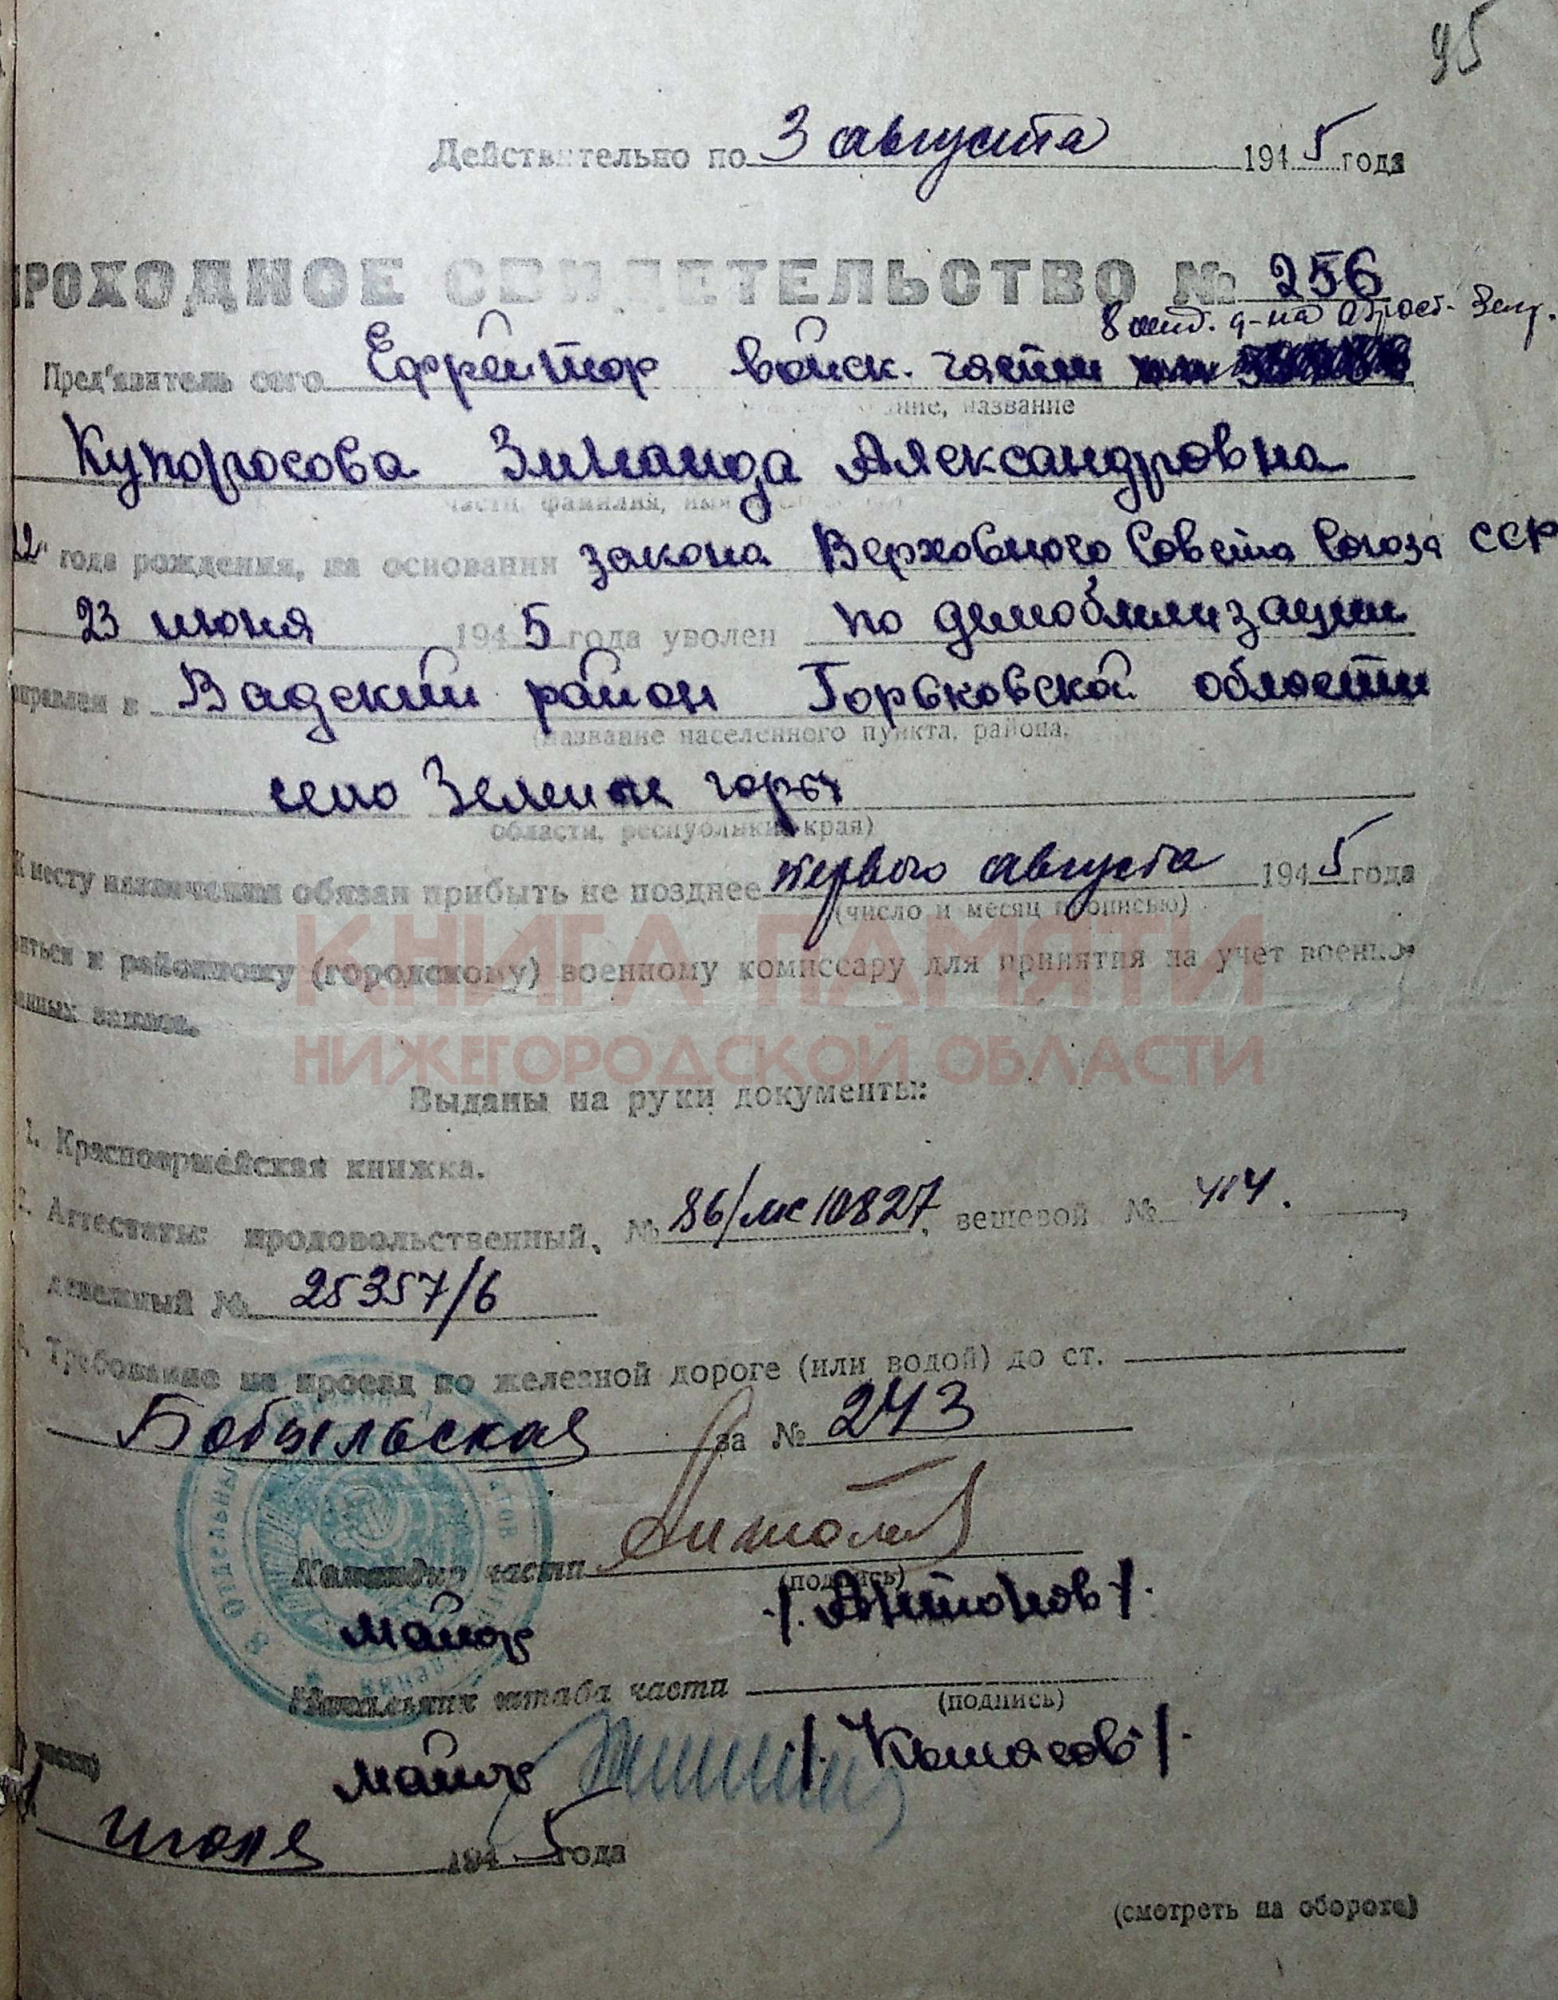 95
Действительно по 3 августа 1945 года
ПРОХОДНОЕ СВИДЕТЕЛЬСТВО № 256
Пред'явитель сего Ефрейтор войск. части
ние, название
Купоросова Зинаида Александровна
части, фамилия, имя
22 года рождения, на основании закона Верховного Совета Союза ССР
23 июня 1945 года уволен по демобилизации
направлен в Вадский район Горьковской области
(название населенного пункта, района,
село Зеленые горы
области, республики, края)
К месту назначения обязан прибыть не позднее первого августа 1945 года
(число и месяц прописью)
виться к районному (городскому) военному комиссару для принятия на учет военно-
КНИГА ПАМЯТИ
НИЖЕГОРОДСКОЙ ОБЛАСТИ
Выданы на руки документы:
1. Красноармейская книжка.
2. Аттестаты: продовольственный, № 86/мс10827, вещевой № 414.,
денежный № 25357/6
3. Требование на проезд по железной дороге (или водой) до ст.
Бобыльская за № 243
Командир части
(подпись)
майор /. Антонов /.
Начальник штаба части
(подпись)
майор /. Кымасов /.
июля 1945 года
(смотреть на обороте)